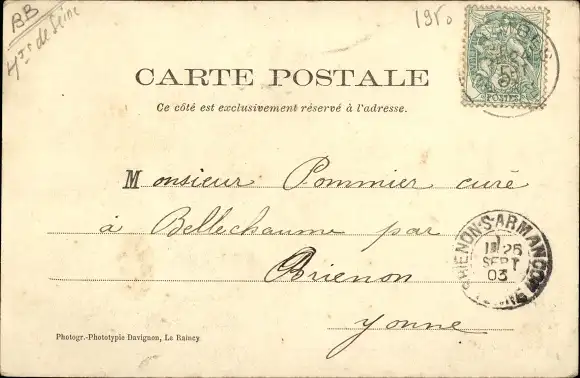 BB
Hts de Seine
1950
CARTE POSTALE
Ce côté est exclusivement réservé à l'adresse.
Monsieur Pommier curé
à Bellechaume par
Brienon
Yonne
BRIENON-S-ARMANÇON
25
SEPT
03
POSTES
Photogr.-Phototypie Davignon, Le Raincy